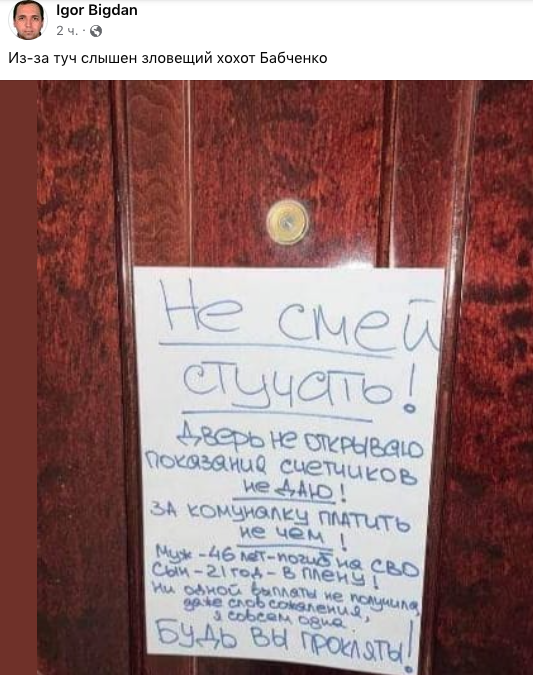 Igor Bigdan
2 ч.
Из-за туч слышен зловещий хохот Бабченко
Не смей
стучать!
Дверь не открываю
показания счетчиков
не даю!
за комуналку платить
не чем!
Муж - 46 лет - погиб на СВО
Сын - 21 год - в плену!
Ни одной выплаты не получила,
даже слов сожаления,
я совсем одна.
Будь вы прокляты!